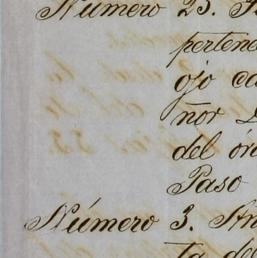 Número 23.
pertene
ojo ca
ñor
del ór
Paso
Número 3. An
ta de